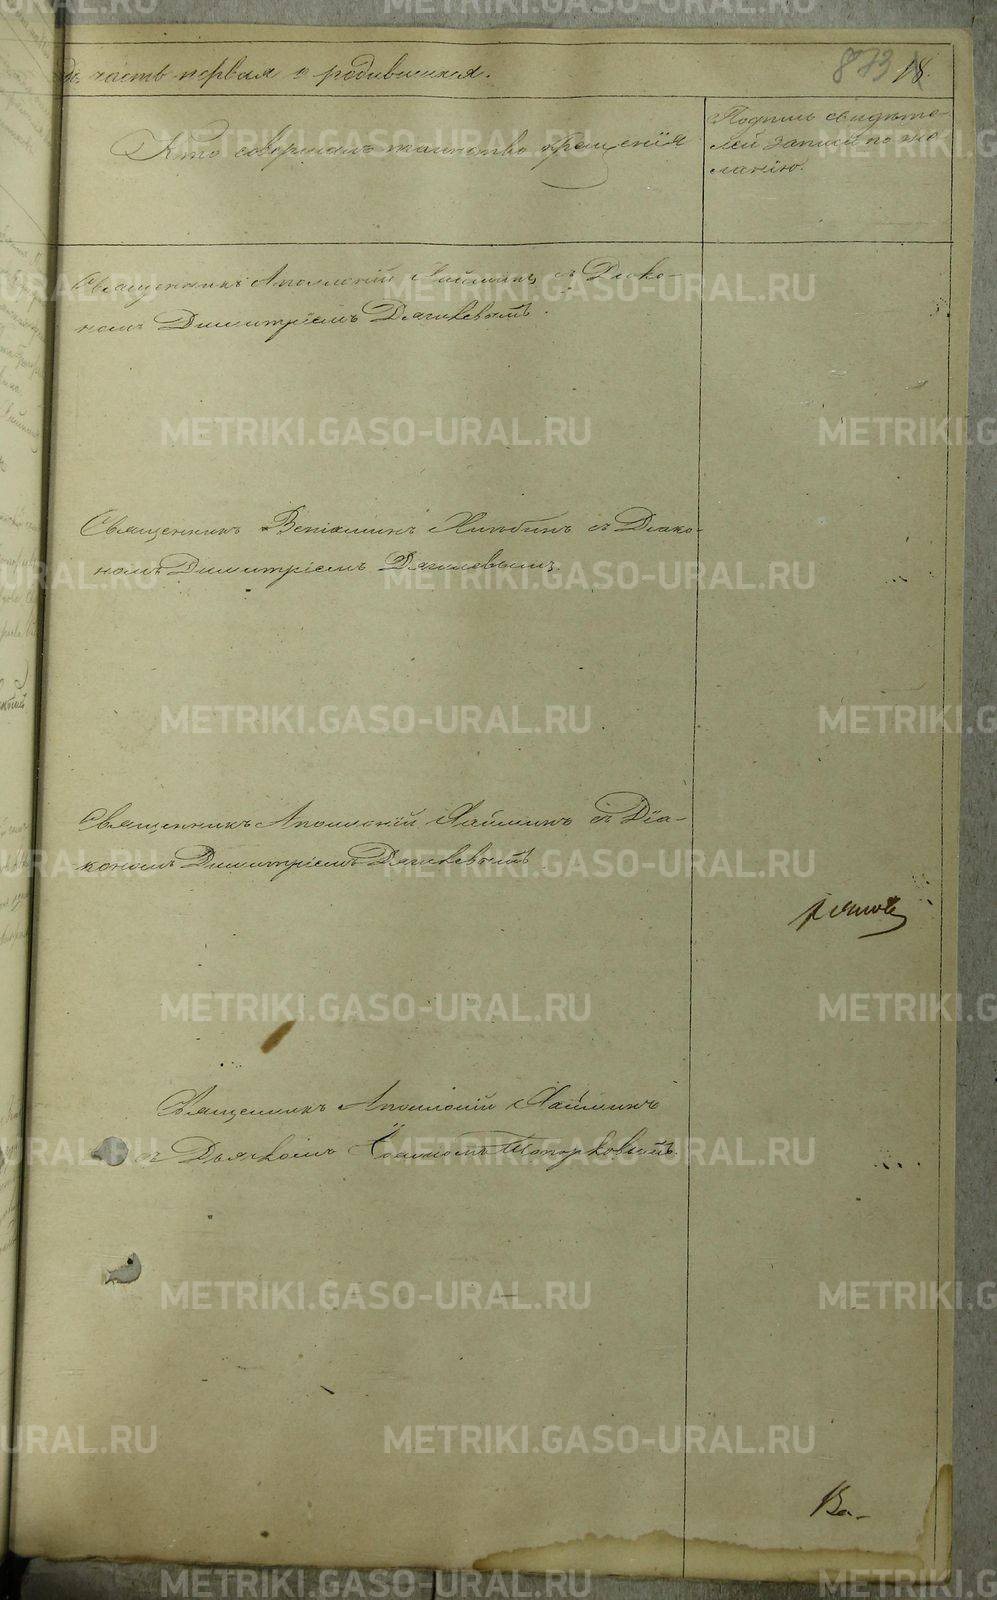 дъ, часть первая о родившихся.
873 18.
Кто совершалъ таинство крещенія
Подпись свидѣте-
лей записи по же-
ланію.
Священникъ Аполлоній съ Діако-
номъ Димитріемъ Дягилевымъ.
Священникъ Веніаминъ съ Діако-
номъ Димитріемъ Дягилевымъ.
Священникъ Аполлоній съ Діа-
кономъ Димитріемъ Дягилевымъ
Священникъ Аполлоній
съ Дьячкомъ Топорковымъ.
Ва-
METRIKI.GASO-URAL.RU